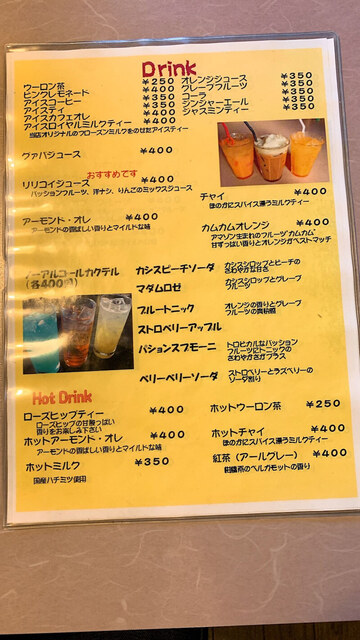 Drink
ウーロン茶 ￥250
ピンクレモネード ￥400
アイスコーヒー ￥350
アイスティ ￥350
アイスカフェオレ ￥400
アイスロイヤルミルクティー ￥400
当店オリジナルのフローズンミルクをのせたアイスティー
オレンジジュース ￥350
グレープフルーツ ￥350
コーラ ￥350
ジンジャーエール ￥350
ジャスミンティー ￥350
グァバジュース ￥400
おすすめです
リリコイジュース ￥400
パッションフルーツ、洋ナシ、りんごのミックスジュース
アーモンド・オレ ￥400
アーモンドの香ばしい香りとマイルドな味
チャイ ￥400
ほのかにスパイス漂うミルクティー
カムカムオレンジ ￥400
アマゾン生まれのフルーツ"カムカム"
甘ずっぱい香りとオレンジがベストマッチ
ノンアルコールカクテル
(各400円)
カシスピーチソーダ カシスシロップとピーチの
さわやかな甘さ
マダムロゼ カシスシロップとグレープ
フルーツ
ブルートニック オレンジの香りとグレープ
フルーツの
ストロベリーアップル
パションスプモーニ トロピカルなパッション
フルーツにトニックの
さわやかさがプラス
ベリーベリーソーダ ストロベリーとラズベリーの
ソーダ割り
Hot Drink
ローズヒップティー ￥400
ローズヒップの甘酸っぱい
香りをお楽しみ下さい
ホットアーモンド・オレ ￥400
アーモンドの香ばしい香りとマイルドな味
ホットミルク ￥350
国産ハチミツ使用
ホットウーロン茶 ￥250
ホットチャイ ￥400
ほのかにスパイス漂うミルクティー
紅茶（アールグレー） ￥400
柑橘系のベルガモットの香り